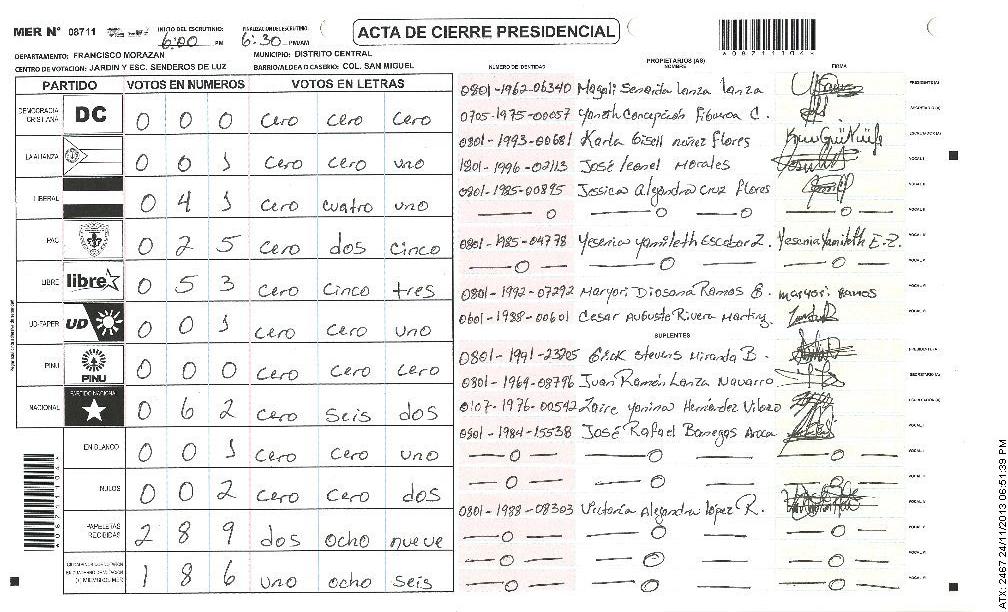 MER N° 08711 INICIO DEL ESCRUTINIO: 6:00 PM FINALIZACION DE ESCRUTINIO: 6:30 PM/AM
ACTA DE CIERRE PRESIDENCIAL
DEPARTAMENTO: FRANCISCO MORAZAN MUNICIPIO: DISTRITO CENTRAL
CENTRO DE VOTACION: JARDIN Y ESC. SENDEROS DE LUZ BARRIO/ALDEA O CASERIO: COL. SAN MIGUEL
PARTIDO VOTOS EN NUMEROS VOTOS EN LETRAS
DEMOCRACIA CRISTIANA DC 0 0 0 cero cero cero
LA ALIANZA 0 0 1 cero cero uno
LIBERAL 0 4 1 cero cuatro uno
PAC 0 2 5 cero dos cinco
LIBRE libre 0 5 3 cero cinco tres
UD-FAPER UD 0 0 1 cero cero uno
PINU PINU 0 0 0 cero cero cero
NACIONAL PARTIDO NACIONAL 0 6 2 cero seis dos
EN BLANCO 0 0 1 cero cero uno
NULOS 0 0 2 cero cero dos
PAPELETAS RECIBIDAS 2 8 9 dos ocho nueve
1 8 6 uno ocho seis
PROPIETARIOS (AS)
NUMERO DE IDENTIDAD NOMBRE FIRMA
0801-1962-06340 Magali Senorida Lanza Lanza PRESIDENTE(A)
0705-1975-00057 Yaneth Concepción Figueroa C. SECRETARIO(A)
0801-1993-00681 Karla Gisell núñez flores ESCRUTADOR(A)
1801-1996-02113 José Leonel Morales VOCAL I
0801-1985-00895 Jessica Alejandra Cruz flores VOCAL II
0801-1985-04778 Yesenia Yamileth Escobar Z. Yesenia Yamileth E.Z.
0801-1992-07292 Maryori Diosana Ramos B. maryori Ramos
0601-1988-00601 Cesar Augusto Rivera Martinez
SUPLENTES
0801-1991-23205 Erick Stevens Miranda B. PRESIDENTE(A)
0801-1969-08796 Juan Ramón Lanza Navarro SECRETARIO(A)
0107-1976-00542 Zaire Yanina Hernández
0801-1984-15538 José Rafael Banegas
0801-1988-08303 Victoria Alejandra López R.
A08711104
ATX-2467 24/11/2013 06:51:39 PM